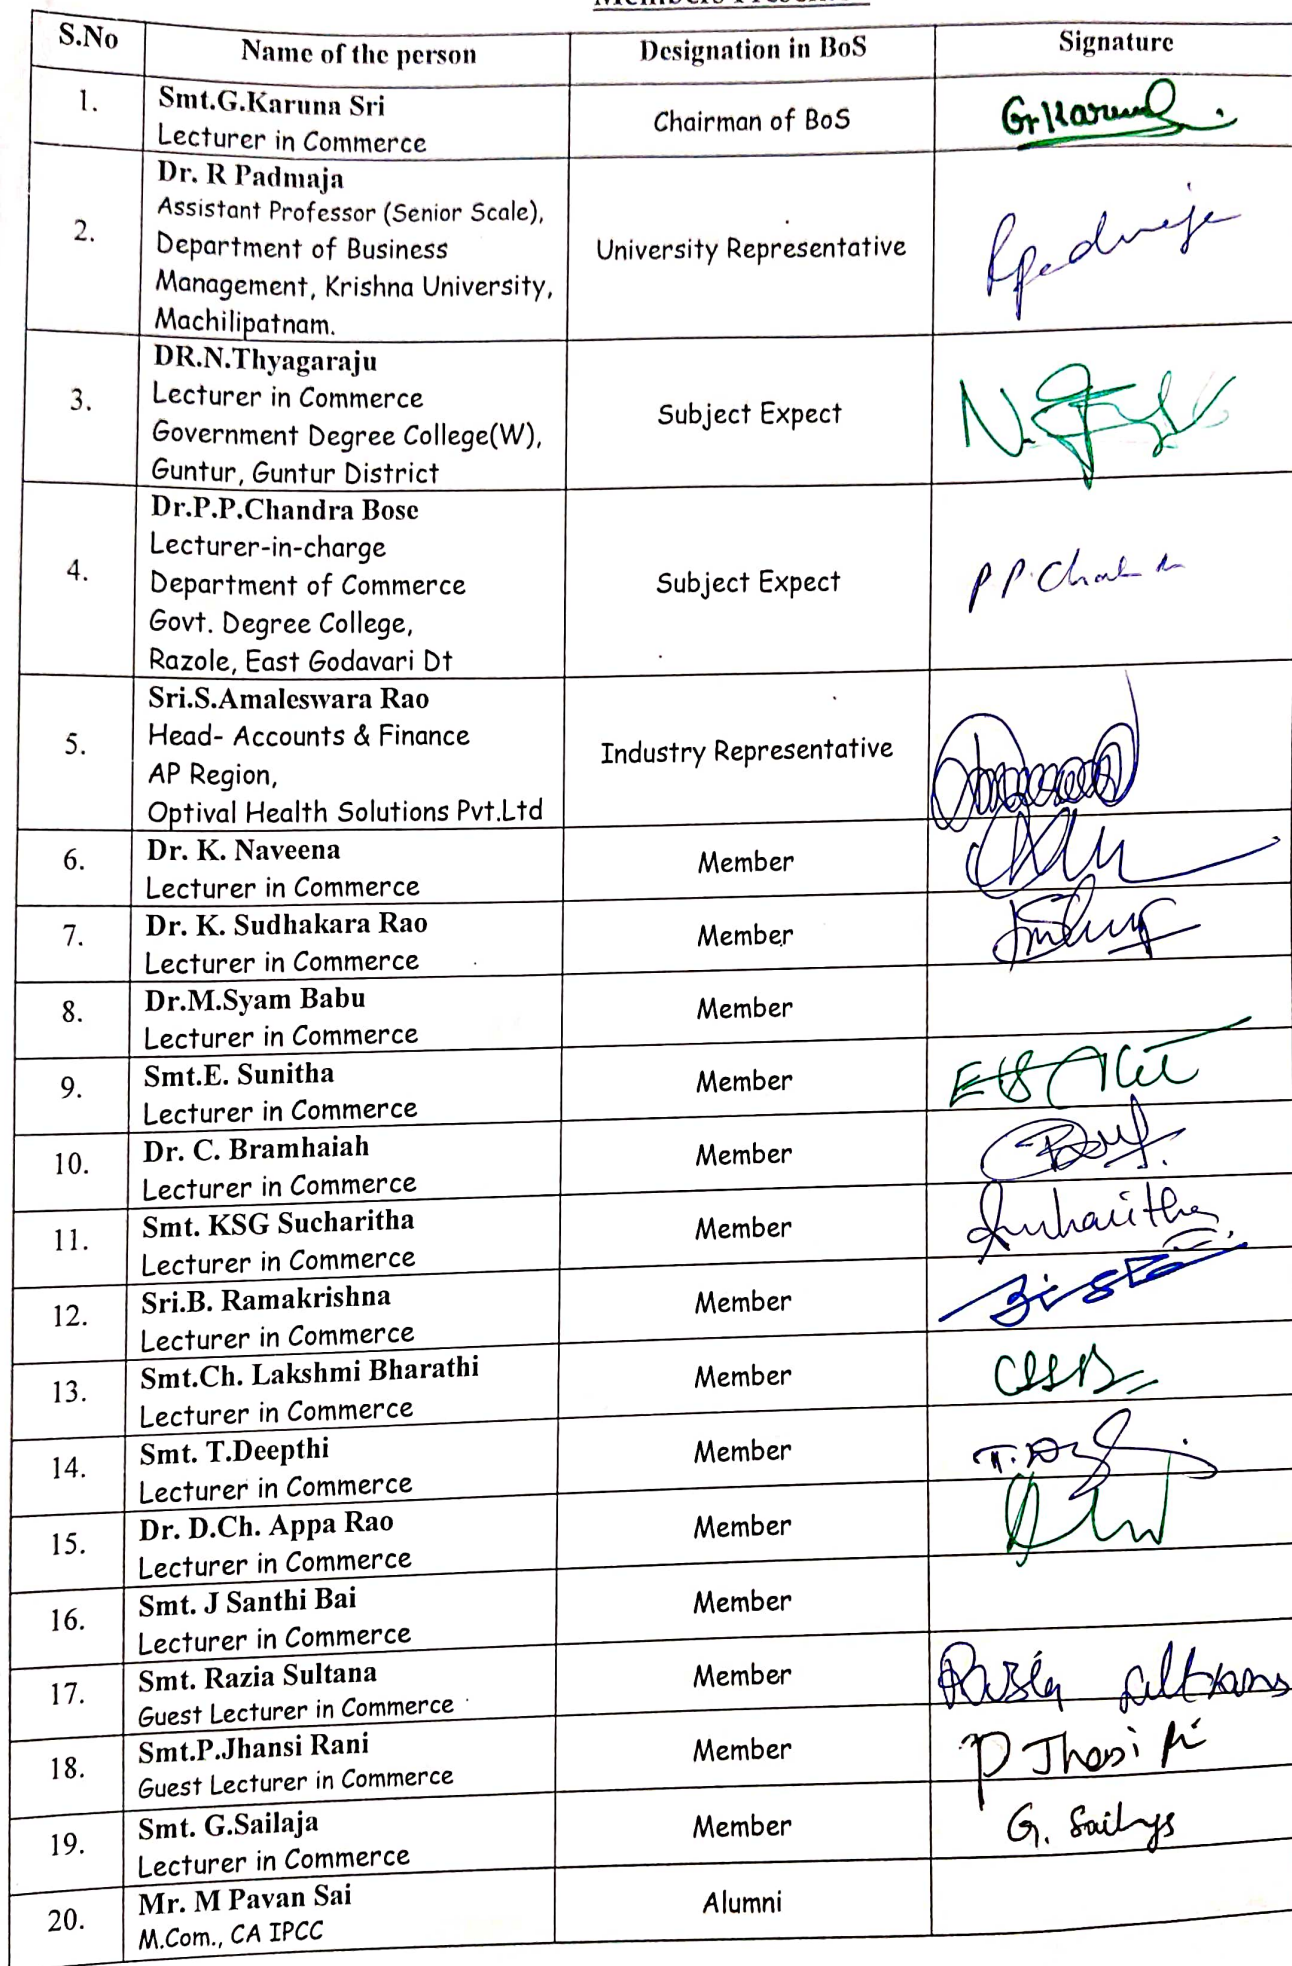 S.No Name of the person Designation in BoS Signature
1. Smt.G.Karuna Sri
Lecturer in Commerce
Chairman of BoS
2. Dr. R Padmaja
Assistant Professor (Senior Scale),
Department of Business
Management, Krishna University,
Machilipatnam.
University Representative
3. DR.N.Thyagaraju
Lecturer in Commerce
Government Degree College(W),
Guntur, Guntur District
Subject Expect
4. Dr.P.P.Chandra Bose
Lecturer-in-charge
Department of Commerce
Govt. Degree College,
Razole, East Godavari Dt
Subject Expect
5. Sri.S.Amaleswara Rao
Head- Accounts & Finance
AP Region,
Optival Health Solutions Pvt.Ltd
Industry Representative
6. Dr. K. Naveena
Lecturer in Commerce
Member
7. Dr. K. Sudhakara Rao
Lecturer in Commerce
Member
8. Dr.M.Syam Babu
Lecturer in Commerce
Member
9. Smt.E. Sunitha
Lecturer in Commerce
Member
10. Dr. C. Bramhaiah
Lecturer in Commerce
Member
11. Smt. KSG Sucharitha
Lecturer in Commerce
Member
12. Sri.B. Ramakrishna
Lecturer in Commerce
Member
13. Smt.Ch. Lakshmi Bharathi
Lecturer in Commerce
Member
14. Smt. T.Deepthi
Lecturer in Commerce
Member
15. Dr. D.Ch. Appa Rao
Lecturer in Commerce
Member
16. Smt. J Santhi Bai
Lecturer in Commerce
Member
17. Smt. Razia Sultana
Guest Lecturer in Commerce
Member
18. Smt.P.Jhansi Rani
Guest Lecturer in Commerce
Member
19. Smt. G.Sailaja
Lecturer in Commerce
Member
20. Mr. M Pavan Sai
M.Com., CA IPCC
Alumni